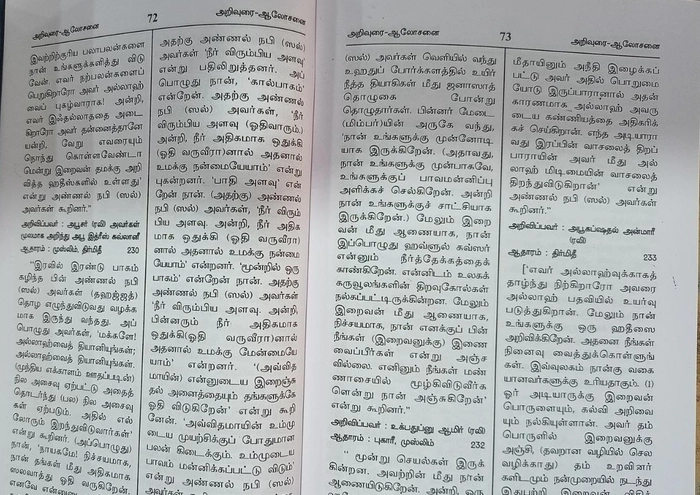 அறிவுரை-ஆலோசனை
72
அறிவுரை-ஆலோசனை
இவற்றிற்குரிய பலாபலன்களை
நான் உங்களுக்களித்து விடு
வேன். எவர் நற்பலன்களைப்
பெறுகிறாரோ அவர் அல்லாஹ்
வைப் புகழ்வாராக! அன்றி,
எவர் இன்தல்லாததை அடை
கிறாரோ அவர் தன்னைத்தானே
யன்றி, வேறு எவரையும்
நொந்து கொள்ளவேண்டா
மென்று இறைவன் தமக்கு அறி
வித்த ஹதீஸ்களில் உள்ளது'
என்று அண்ணல் நபி (ஸல்)
அவர்கள் கூறினர்."
அறிவிப்பவர் : அபூதர் (ரலி) அவர்கள்
மூலமாக அறிந்து அபூ இத்ரீஸ் கவ்லானீ
ஆதாரம் : முஸ்லிம், திர்மிதீ 230
"இரவில் இரண்டு பாகம்
கழிந்த பின் அண்ணல் நபி
(ஸல்) அவர்கள் (தஹஜ்ஜத்)
தொழ எழுந்துவிடுவது வழக்க
மாக இருந்து வந்தது. அப்
பொழுது அவர்கள், 'மக்களே!
அல்லாஹ்வைத் தியானியுங்கள்;
அல்லாஹ்வைத் தியானியுங்கள்.
(முந்திய எக்காளம் ஊதப்படின்)
நில அசைவு ஏற்பட்டு அதைத்
தொடர்ந்து (பல) நில அசைவு
கள் ஏற்படும். அதில் எல்
லோரும் இறந்துவிடுவார்கள்'
என்று கூறினர். (அப்பொழுது)
நான், 'நாயகமே! நிச்சயமாக,
நான் தங்கள் மீது அதிகமாக
ஸலவாத்து ஓதி வருகிறேன்,
அதற்கு அண்ணல் நபி (ஸல்)
அவர்கள் 'நீர் விரும்பிய அளவு'
என்று பதிலிறுத்தனர். அப்
பொழுது நான், 'கால்பாகம்'
என்றேன். அதற்கு அண்ணல்
நபி (ஸல்) அவர்கள், 'நீர்
விரும்பிய அளவு (ஓதிவாரும்.)
அன்றி, நீர் அதிகமாக ஒதுக்கி
(ஓதி வருவீரா)னால் அதனால்
உமக்கு நன்மையேயாம்' என்று
புகன்றனர். 'பாதி அளவு' என்
றேன் நான். (அதற்கு) அண்ணல்
நபி (ஸல்) அவர்கள், 'நீர் விரும்
பிய அளவு. அன்றி, நீர் அதிக
மாக ஒதுக்கி (ஓதி வருவீரா)
னால் அதனால் உமக்கு நன்மை
யேயாம்' என்றனர். 'மூன்றில் ஒரு
பாகம்' என்றேன் நான். அதற்கு
அண்ணல் நபி (ஸல்) அவர்கள்
'நீர் விரும்பிய அளவு. அன்றி,
பின்னரும் நீர் அதிகமாக
ஒதுக்கி(ஓதி வருவீரா)னால்
அதனால் உமக்கு மேன்மையே
யாம்' என்றனர். '(அவ்வித
மாயின்) என்னுடைய இறைஞ்சு
தல் அனைத்தையும் தங்களுக்கே
ஓதி விடுகிறேன்' என்று கூறி
னேன். 'அவ்விதமாயின் உம்மு
டைய முயற்சிக்குப் போதுமான
பலன் கிடைக்கும். உம்முடைய
பாவம் மன்னிக்கப்பட்டு விடும்'
என்று அண்ணல் நபி (ஸல்)
அவர்கள் கூறினர்."
73
அறிவுரை-ஆலோசனை
(ஸல்) அவர்கள் வெளியில் வந்து
உஹதுப் போர்க்களத்தில் உயிர்
நீத்த தியாகிகள் மீது ஜனாஸாத்
தொழுகை போன்று
தொழுதார்கள். பின்னர் மேடை
(மிம்பர்)யின் அருகே வந்து,
'நான் உங்களுக்கு முன்னோடி
யாக இருக்கிறேன். (அதாவது,
நான் உங்களுக்கு முன்பாகவே,
உங்களுக்குப் பாவமன்னிப்பு
அளிக்கச் செல்கிறேன். அன்றி
நான் உங்களுக்குச் சாட்சியாக
இருக்கிறேன்.) மேலும் இறை
வன் மீது ஆணையாக, நான்
இப்பொழுது ஹவ்ளுல் கவ்ஸர்
என்னும் நீர்த்தேக்கத்தைக்
காண்கிறேன். என்னிடம் உலகக்
கருவூலங்களின் திறவுகோல்கள்
நல்கப்பட்டிருக்கின்றன. மேலும்
இறைவன் மீது ஆணையாக,
நிச்சயமாக, நான் எனக்குப் பின்
நீங்கள் (இறைவனுக்கு) இணை
வைப்பீர்கள் என்று அஞ்ச
வில்லை. எனினும் நீங்கள் மண்
ணாசையில் மூழ்கிவிடுவீர்க
ளென்று நான் அஞ்சுகிறேன்'
என்று கூறினர்."
அறிவிப்பவர் : உக்பதுப்னு ஆமிர் (ரலி)
ஆதாரம் : புகாரீ, முஸ்லிம் 232
"மூன்று செயல்கள் இருக்
கின்றன. அவற்றின் மீது நான்
ஆணையிடுகிறேன். அன்றி, ஒரு
மீதாயினும் அநீதி இழைக்கப்
பட்டு அவர் அதில் பொறுமை
யோடு இருப்பாரானால் அதன்
காரணமாக, அல்லாஹ் அவரு
டைய கண்ணியத்தை அதிகரிக்
கச் செய்கிறான். எந்த அடியாரா
வது இரப்பின் வாசலைத் திறப்
பாராயின் அவர் மீது அல்
லாஹ் மிடிமையின் வாசலைத்
திறந்துவிடுகிறான்' என்று
அண்ணல் நபி (ஸல்) அவர்கள்
கூறினர்."
அறிவிப்பவர் : அபூகப்ஷதல் அன்மாரீ
(ரலி)
ஆதாரம் : திர்மிதீ 233
['எவர் அல்லாஹ்வுக்காகத்
தாழ்ந்து நிற்கிறாரோ அவரை
அல்லாஹ் பதவியில் உயர்வு
படுத்துகிறான். மேலும் நான்
உங்களுக்கு ஒரு ஹதீஸை
அறிவிக்கிறேன். அதனை நீங்கள்
நினைவு வைத்துக்கொள்ளுங்
கள். இவ்வுலகம் நான்கு வகை
யானவர்களுக்கு உரியதாகும். (1)
ஓர் அடியாருக்கு இறைவன்
பொருளையும், கல்வி அறிவை
யும் நல்கியுள்ளான். அவர் தம்
பொருளில் இறைவனுக்கு
அஞ்சி, (தவறான வழியில் செல
வழிக்காது) தம் உறவினர்
களிடமும் நன்முறையில் நடந்து